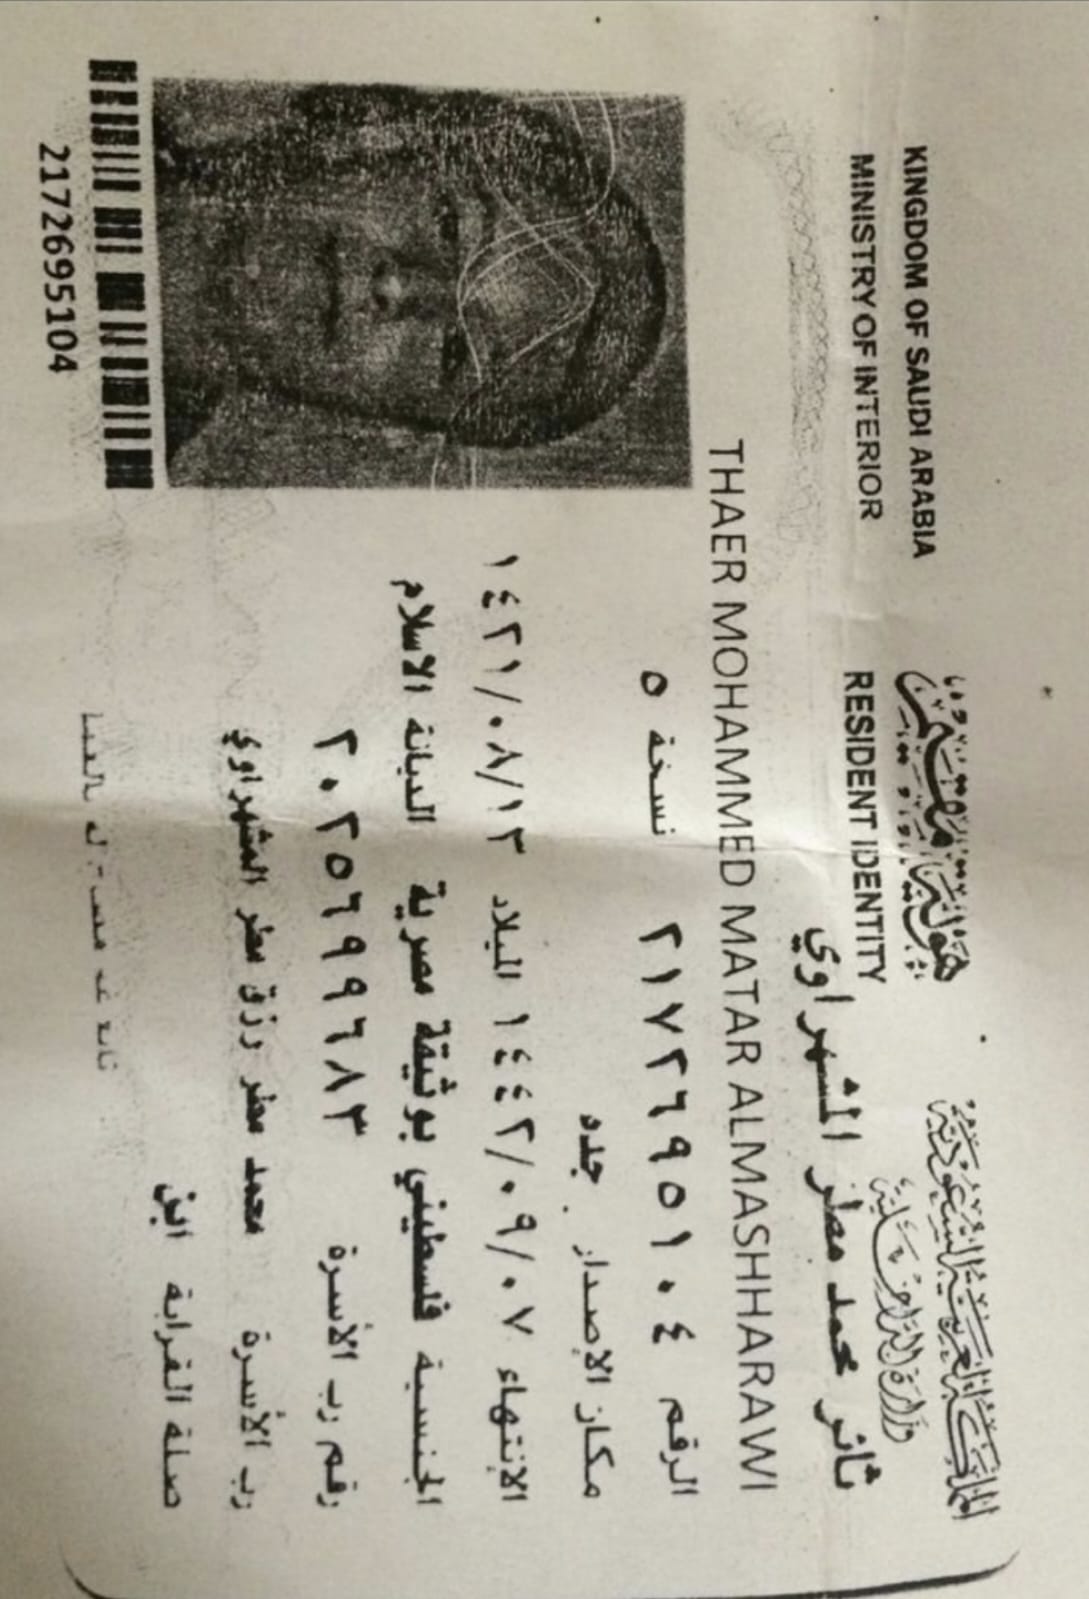 المملكة العربية السعودية
وزارة الداخلية
هوية مقيم
RESIDENT IDENTITY
KINGDOM OF SAUDI ARABIA
MINISTRY OF INTERIOR
ثائر محمد مطر المشهراوي
THAER MOHAMMED MATAR ALMASHHARAWI
الرقم ٢١٧٢٦٩٥١٠٤ نسخة ٥
مكان الإصدار جده
الإنتهاء ١٤٤٢/٠٩/٠٧ الميلاد ١٤٢١/٠٨/١٣
الجنسية فلسطيني بوثيقة مصرية الديانة الاسلام
رقم رب الأسرة ٢٠٢٥٦٩٩٦٨٣
رب الأسرة محمد مطر رزق مطر المشهراوي
صلة القرابة ابن
2172695104